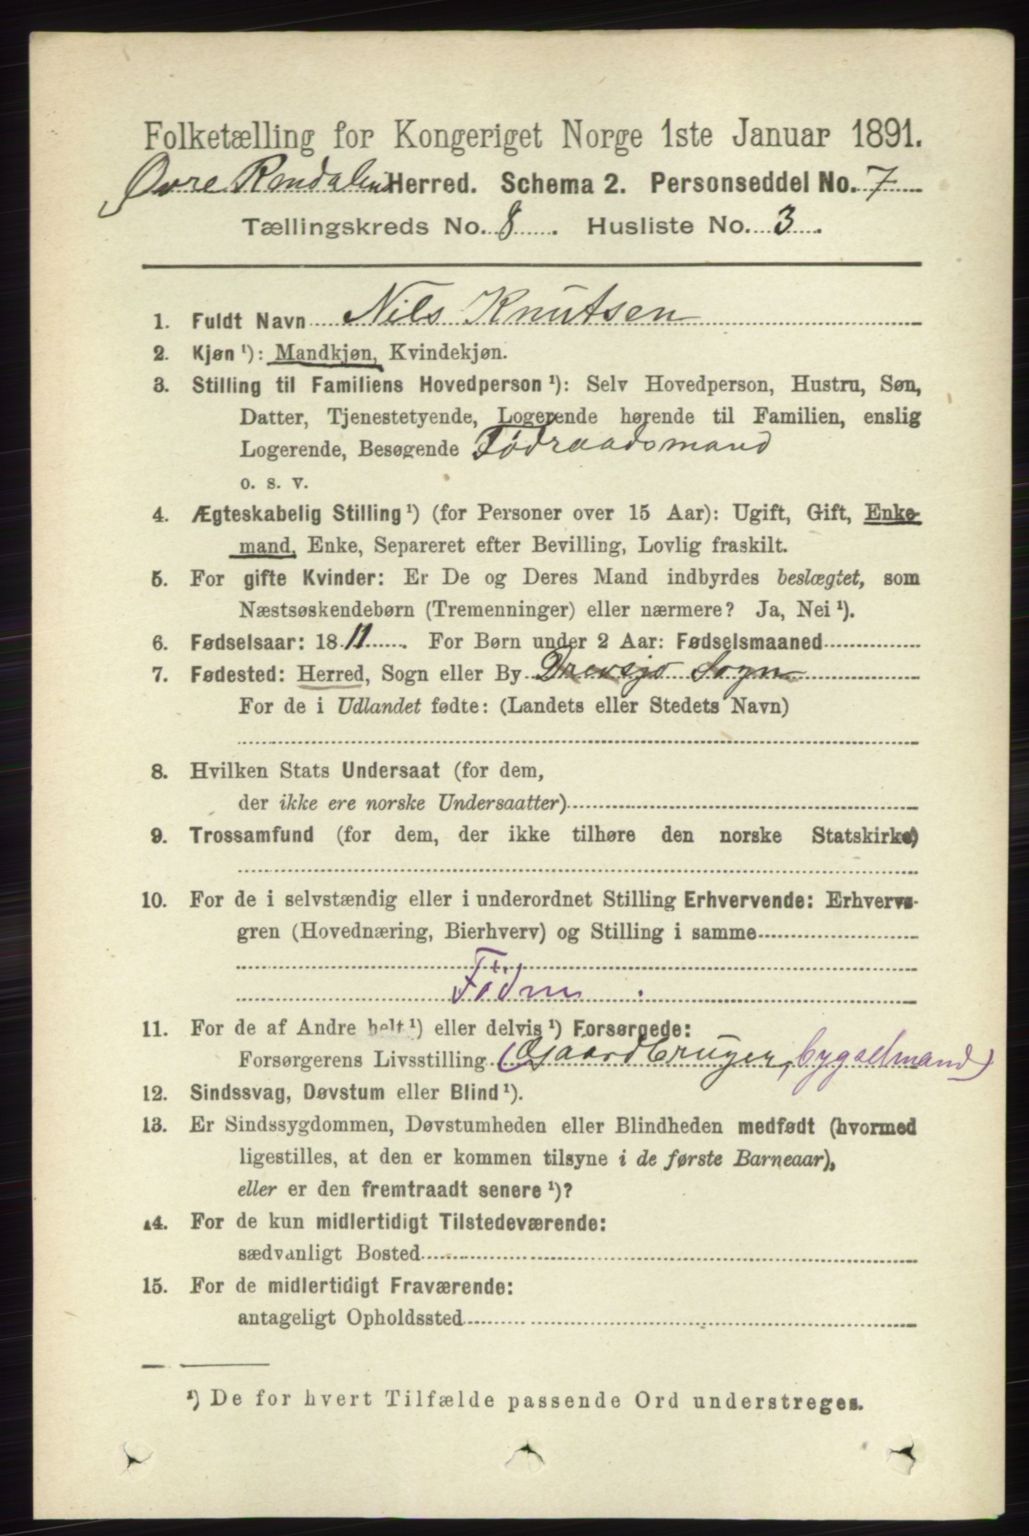 Folketælling for Kongeriget Norge 1ste Januar 1891.
Øvre Rendalen Herred. Schema 2. Personseddel No. 7
Tællingskreds No. 8. Husliste No. 3.
1. Fuldt Navn Nils Knutsen
2. Kjøn ¹): Mandkjøn, Kvindekjøn.
3. Stilling til Familiens Hovedperson ¹): Selv Hovedperson, Hustru, Søn,
Datter, Tjenestetyende, Logerende hørende til Familien, enslig
Logerende, Besøgende Födraadsmand
o. s. v.
4. Ægteskabelig Stilling ¹) (for Personer over 15 Aar): Ugift, Gift, Enke-
mand, Enke, Separeret efter Bevilling, Lovlig fraskilt.
5. For gifte Kvinder: Er De og Deres Mand indbyrdes beslægtet, som
Næstsøskendebørn (Tremenninger) eller nærmere? Ja, Nei ¹).
6. Fødselsaar: 1811. For Børn under 2 Aar: Fødselsmaaned
7. Fødested: Herred, Sogn eller By Drevsjø Sogn
For de i Udlandet fødte: (Landets eller Stedets Navn)
8. Hvilken Stats Undersaat (for dem,
der ikke ere norske Undersaatter)
9. Trossamfund (for dem, der ikke tilhøre den norske Statskirke)
10. For de i selvstændig eller i underordnet Stilling Erhvervende: Erhvervs-
gren (Hovednæring, Bierhverv) og Stilling i samme
11. For de af Andre helt ¹) eller delvis ¹) Forsørgede:
Forsørgerens Livsstilling (Gaardbruger, bygselmand)
12. Sindssvag, Døvstum eller Blind ¹).
13. Er Sindssygdommen, Døvstumheden eller Blindheden medfødt (hvormed
ligestilles, at den er kommen tilsyne i de første Barneaar),
eller er den fremtraadt senere ¹)?
14. For de kun midlertidigt Tilstedeværende:
sædvanligt Bosted
15. For de midlertidigt Fraværende:
antageligt Opholdssted
¹) De for hvert Tilfælde passende Ord understreges.